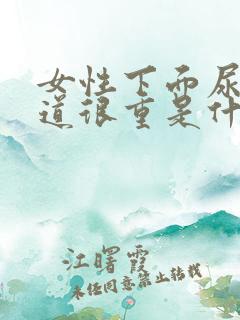 女性下面尿
道很重是什
江曙霞
未经同意禁止转载